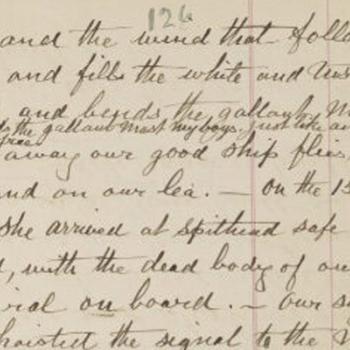 126
and the wind that follo
and fills the white and rus
and bends the gallant M
the gallant Mast my boys, just like an
away our good ship flies,
and on our lea. — on the 15
she arrived at spithead safe
, with the dead body of ou
iral on board. — our s
hoisted the signal to the